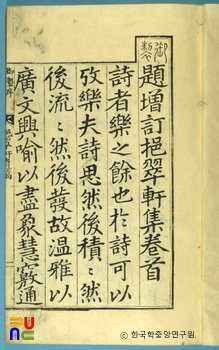 御製
題增訂挹翠軒集卷首
詩者樂之餘也於詩可以
攷樂夫詩思然後積〻然
後流〻然後發故溫雅以
廣文興喻以盡象慧竅通
ⓒ 한국학중앙연구원.